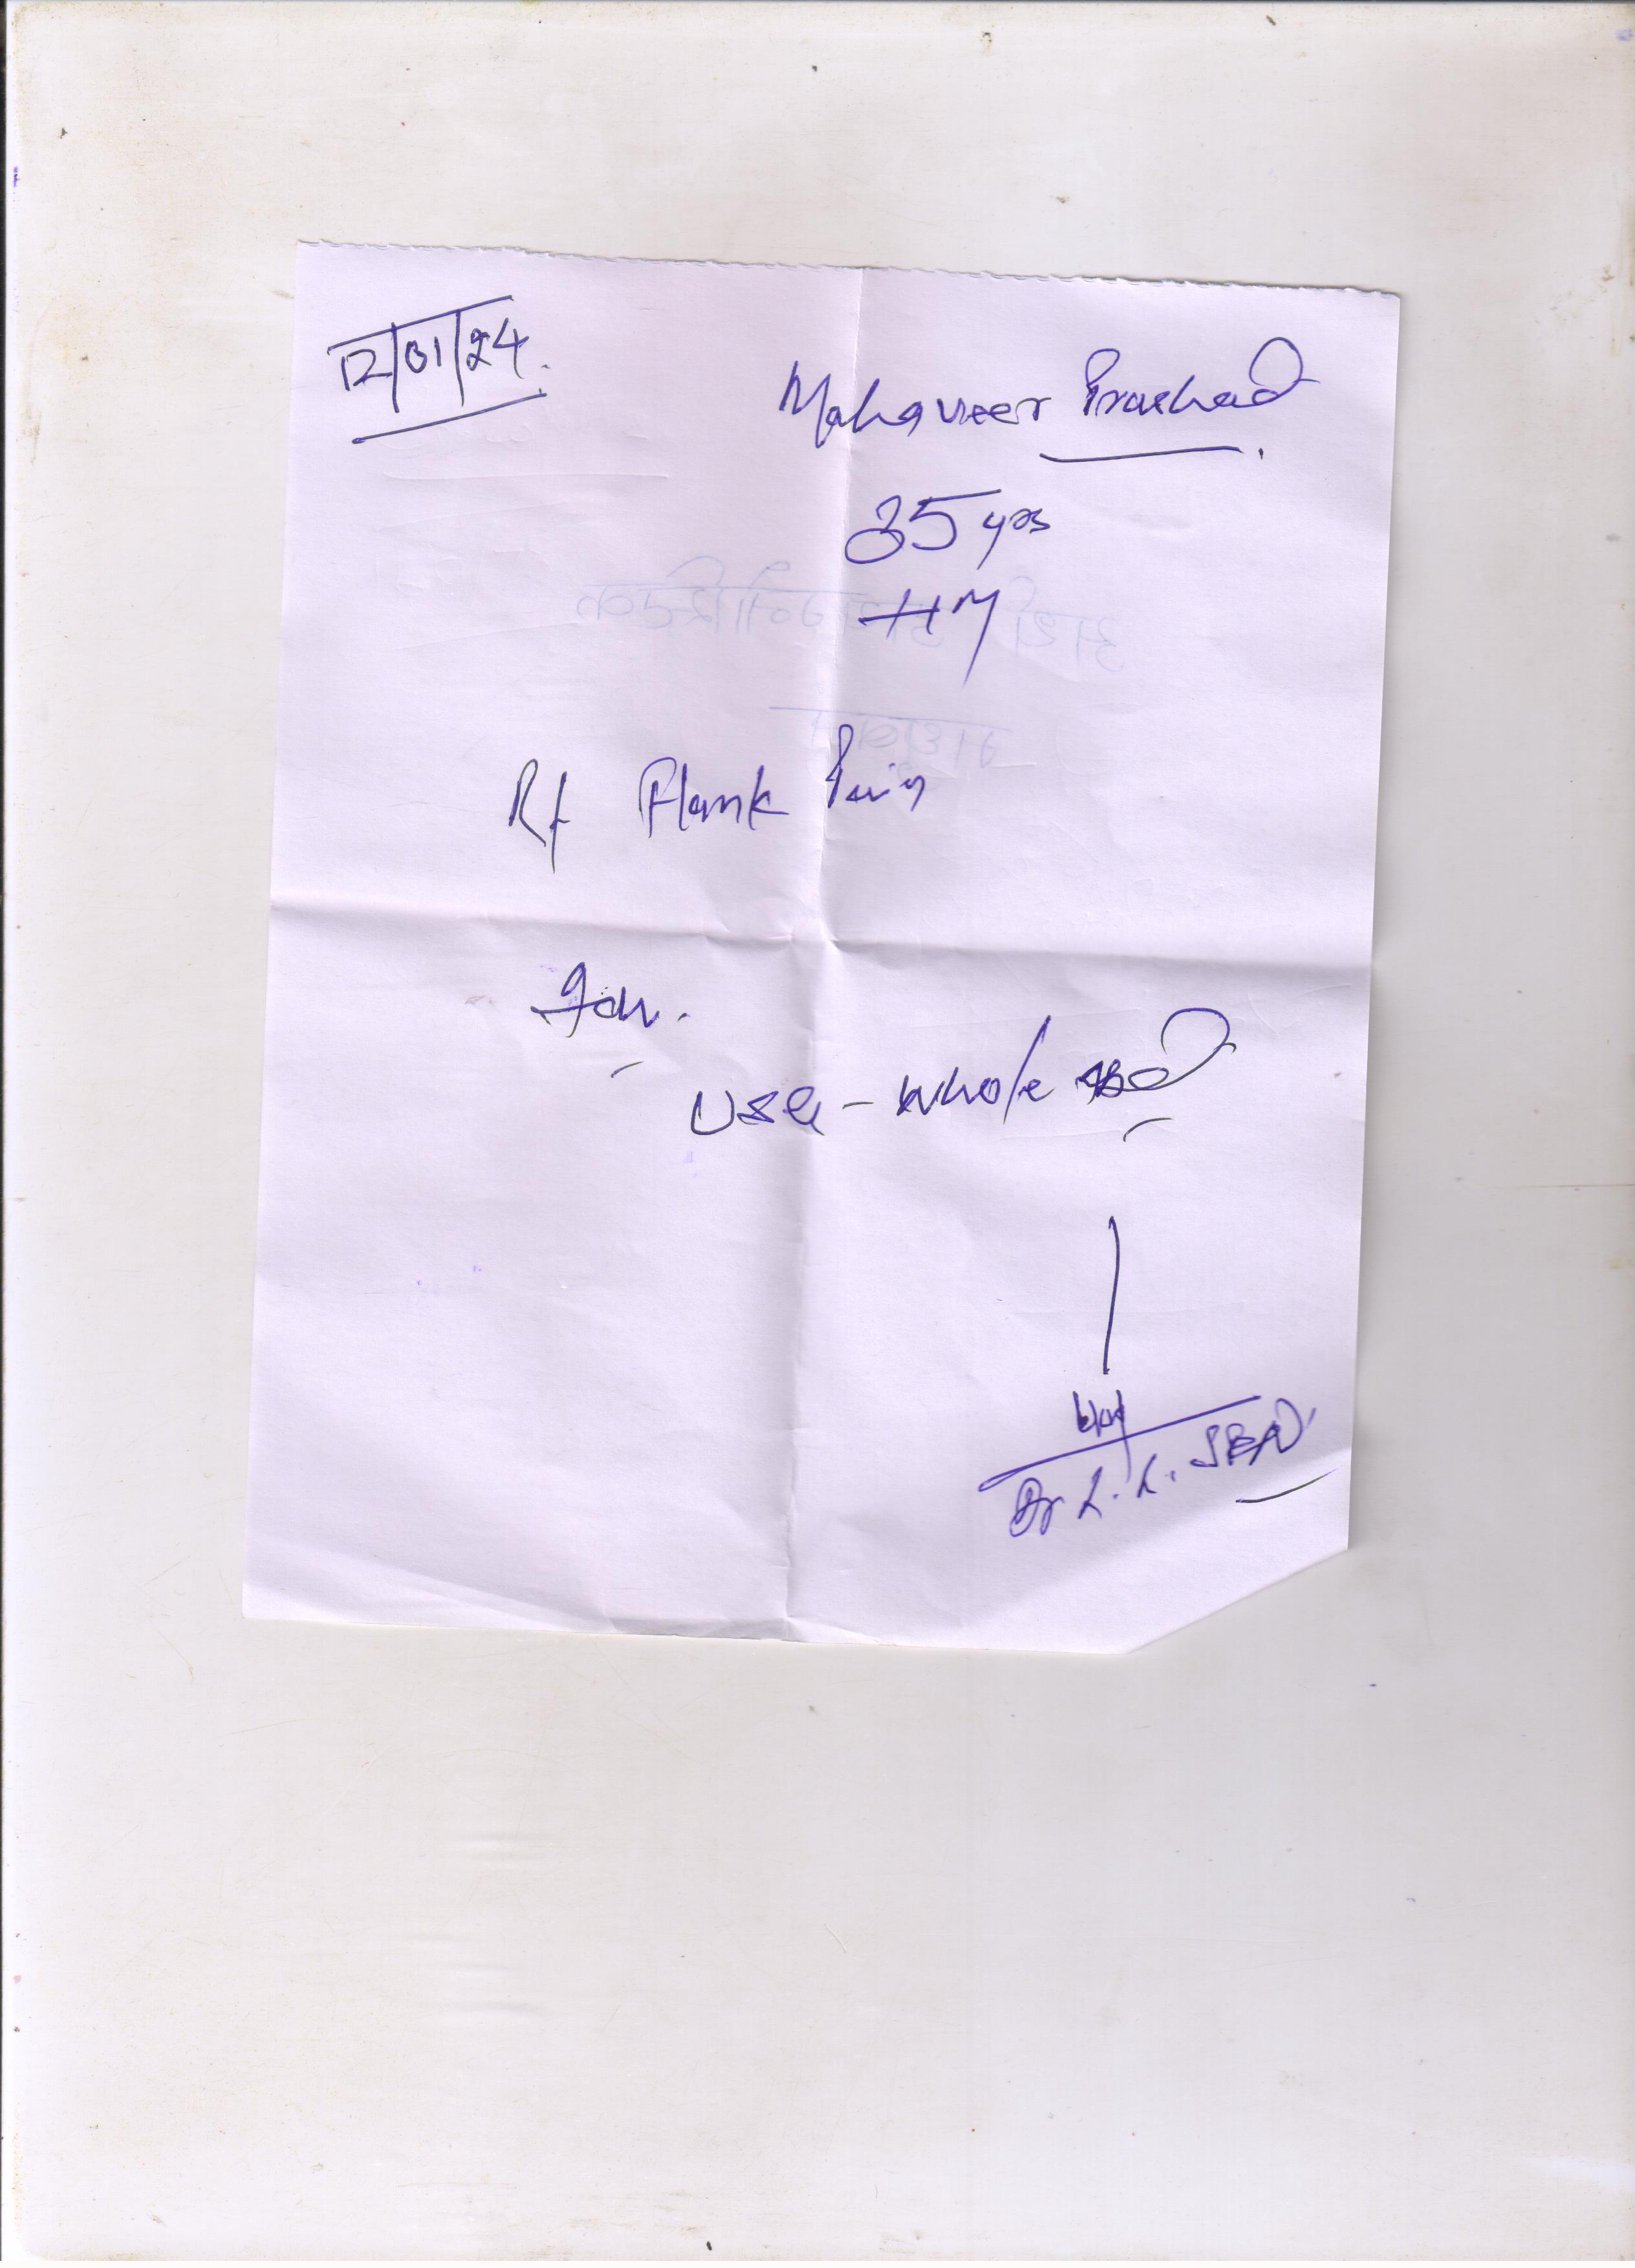 12/01/24.
Mahaveer Prashad
35 yrs
HM
Rt Flank Pain
Adv.
USG - whole abd
Dr L. L. SBN